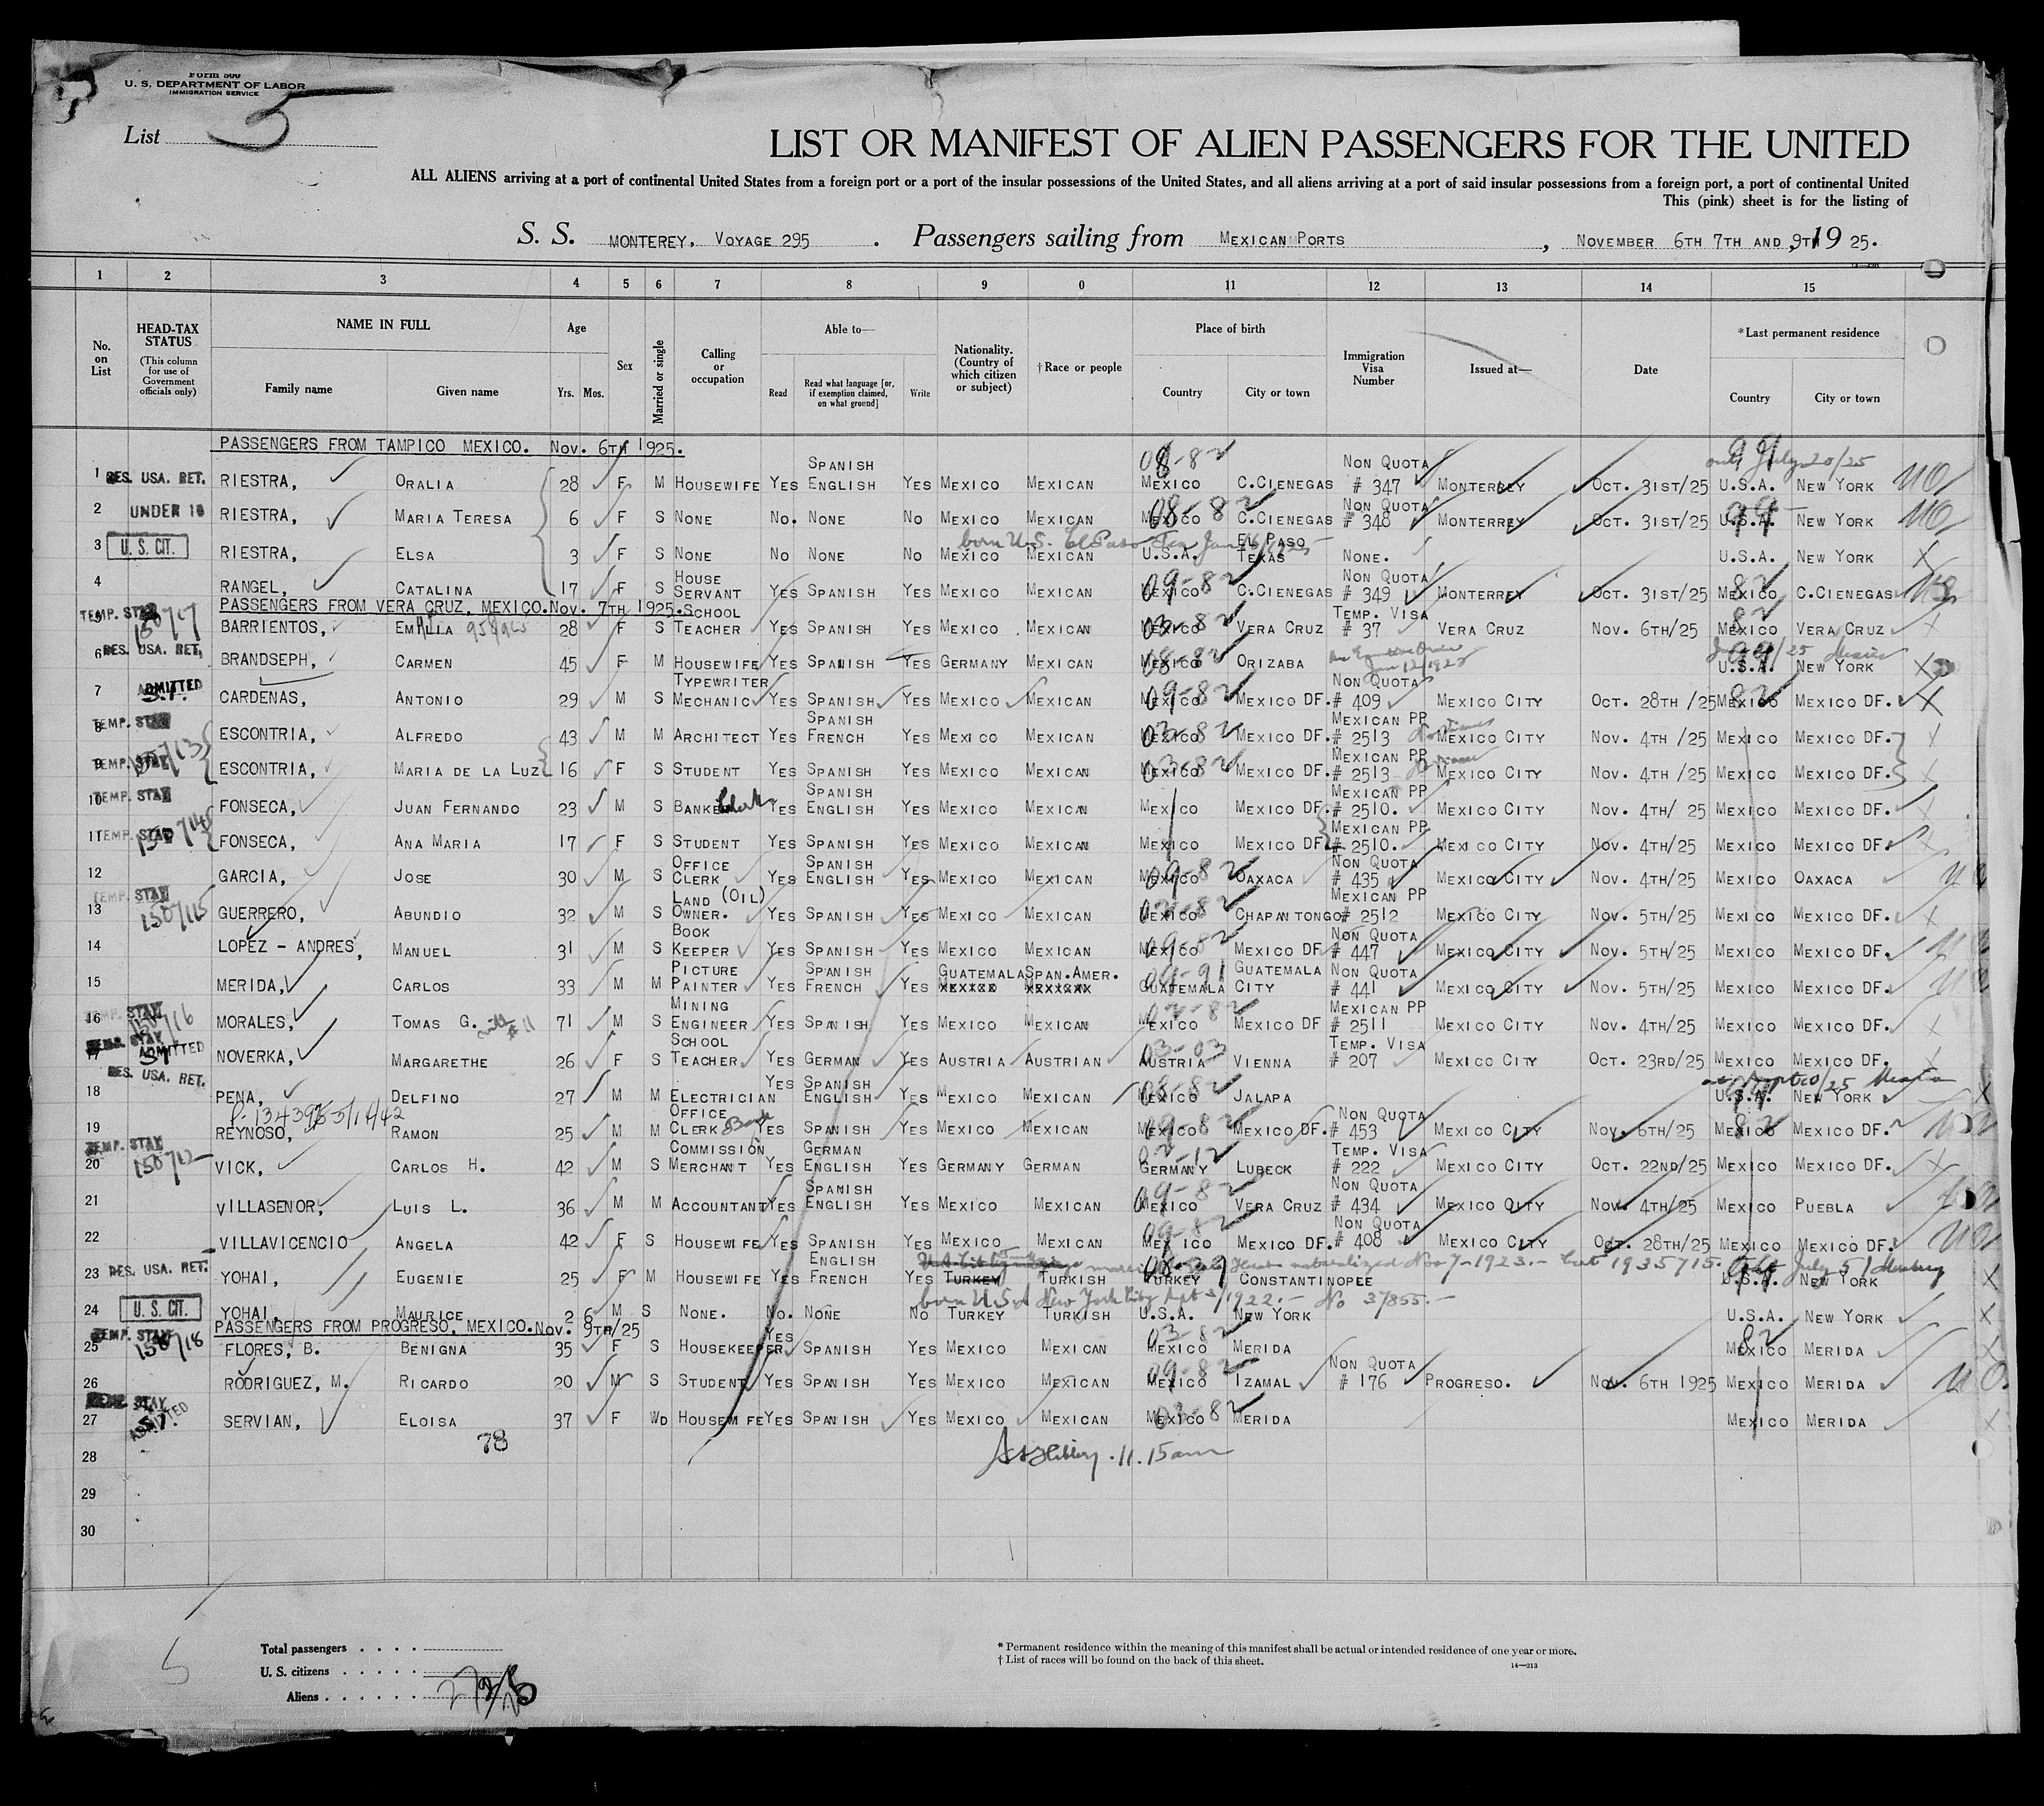 Form 500
U. S. DEPARTMENT OF LABOR
IMMIGRATION SERVICE
List 5
LIST OR MANIFEST OF ALIEN PASSENGERS FOR THE UNITED
ALL ALIENS arriving at a port of continental United States from a foreign port or a port of the insular possessions of the United States, and all aliens arriving at a port of said insular possessions from a foreign port, a port of continental United
This (pink) sheet is for the listing of
S. S. MONTEREY, VOYAGE 295. Passengers sailing from MEXICAN PORTS, NOVEMBER 6TH 7TH AND 9TH, 19 25.
1 2 3 4 5 6 7 8 9 0 11 12 13 14 15
No. on List HEAD-TAX STATUS (This column for use of Government officials only) NAME IN FULL Family name Given name Age Yrs. Mos. Sex Married or single Calling or occupation Able to— Read Read what language [or, if exemption claimed, on what ground] Write Nationality. (Country of which citizen or subject) †Race or people Place of birth Country City or town Immigration Visa Number Issued at— Date *Last permanent residence Country City or town
PASSENGERS FROM TAMPICO MEXICO. NOV. 6TH 1925.
1 RES. USA. RET. RIESTRA, ORALIA 28 F M HOUSEWIFE YES SPANISH ENGLISH YES MEXICO MEXICAN 08-82 MEXICO C.CIENEGAS NON QUOTA # 347 MONTERREY OCT. 31ST/25 99 July 20/25 U.S.A. NEW YORK
2 UNDER 16 RIESTRA, MARIA TERESA 6 F S NONE NO. NONE NO MEXICO MEXICAN 08-82 MEXICO C.CIENEGAS NON QUOTA # 348 MONTERREY OCT. 31ST/25 99 U.S.A. NEW YORK
3 U. S. CIT. RIESTRA, ELSA 3 F S NONE NO NONE NO MEXICO MEXICAN born U.S. El Paso U.S.A. EL PASO TEXAS NONE. U.S.A. NEW YORK X
4 RANGEL, CATALINA 17 F S HOUSE SERVANT YES SPANISH YES MEXICO MEXICAN 09-82 MEXICO C.CIENEGAS NON QUOTA # 349 MONTERREY OCT. 31ST/25 82 MEXICO C.CIENEGAS
PASSENGERS FROM VERA CRUZ, MEXICO. NOV. 7TH 1925.
5 TEMP. STAY BARRIENTOS, EMILIA 28 F S SCHOOL TEACHER YES SPANISH YES MEXICO MEXICAN 03-82 MEXICO VERA CRUZ TEMP. VISA # 37 VERA CRUZ NOV. 6TH/25 82 MEXICO VERA CRUZ X
6 RES. USA. RET. BRANDSEPH, CARMEN 45 F M HOUSEWIFE YES SPANISH YES GERMANY MEXICAN 08-82 MEXICO ORIZABA U.S.A. NEW YORK X
7 ADMITTED CARDENAS, ANTONIO 29 M S TYPEWRITER MECHANIC YES SPANISH YES MEXICO MEXICAN 09-82 MEXICO MEXICO DF. NON QUOTA # 409 MEXICO CITY OCT. 28TH /25 82 MEXICO MEXICO DF. X
8 TEMP. STAY ESCONTRIA, ALFREDO 43 M M ARCHITECT YES SPANISH FRENCH YES MEXICO MEXICAN 03-82 MEXICO MEXICO DF. MEXICAN PP # 2513 MEXICO CITY NOV. 4TH /25 MEXICO MEXICO DF. X
9 TEMP. STAY ESCONTRIA, MARIA DE LA LUZ 16 F S STUDENT YES SPANISH YES MEXICO MEXICAN 03-82 MEXICO MEXICO DF. MEXICAN PP # 2513 MEXICO CITY NOV. 4TH /25 MEXICO MEXICO DF. X
10 TEMP. STAY FONSECA, JUAN FERNANDO 23 M S BANK Clerk YES SPANISH ENGLISH YES MEXICO MEXICAN MEXICO MEXICO DF. MEXICAN PP # 2510. MEXICO CITY NOV. 4TH/ 25 MEXICO MEXICO DF. X
11 TEMP. STAY FONSECA, ANA MARIA 17 F S STUDENT YES SPANISH YES MEXICO MEXICAN MEXICO MEXICO DF. MEXICAN PP # 2510. MEXICO CITY NOV. 4TH/25 MEXICO MEXICO DF. X
12 GARCIA, JOSE 30 M S OFFICE CLERK YES SPANISH ENGLISH YES MEXICO MEXICAN 09-82 MEXICO OAXACA NON QUOTA # 435 MEXICO CITY NOV. 4TH/25 MEXICO OAXACA
13 TEMP. STAY 150715 GUERRERO, ABUNDIO 32 M S LAND (OIL) OWNER. YES SPANISH YES MEXICO MEXICAN MEXICO CHAPANTONGO MEXICAN PP # 2512 MEXICO CITY NOV. 5TH/25 MEXICO MEXICO DF. X
14 LOPEZ - ANDRES, MANUEL 31 M S BOOK KEEPER YES SPANISH YES MEXICO MEXICAN 09-82 MEXICO MEXICO DF. NON QUOTA # 447 MEXICO CITY NOV. 5TH/25 MEXICO MEXICO DF.
15 MERIDA, CARLOS 33 M M PICTURE PAINTER YES SPANISH FRENCH YES GUATEMALA SPAN.AMER. 09-91 GUATEMALA GUATEMALA CITY NON QUOTA # 441 MEXICO CITY NOV. 5TH/25 MEXICO MEXICO DF.
16 TEMP. STAY MORALES, TOMAS G. 71 M S MINING ENGINEER YES SPANISH YES MEXICO MEXICAN MEXICO MEXICO DF MEXICAN PP # 2511 MEXICO CITY NOV. 4TH/25 MEXICO MEXICO DF. X
17 ADMITTED NOVERKA, MARGARETHE 26 F S SCHOOL TEACHER YES GERMAN YES AUSTRIA AUSTRIAN 03-03 AUSTRIA VIENNA TEMP. VISA # 207 MEXICO CITY OCT. 23RD/25 MEXICO MEXICO DF. X
18 RES. USA. RET. PENA, DELFINO 27 M M ELECTRICIAN YES SPANISH ENGLISH YES MEXICO MEXICAN 08-82 MEXICO JALAPA U.S.A. NEW YORK X
19 REYNOSO, RAMON 25 M M OFFICE CLERK YES SPANISH YES MEXICO MEXICAN 09-82 MEXICO MEXICO DF. NON QUOTA # 453 MEXICO CITY NOV. 6TH/25 82 MEXICO MEXICO DF.
20 TEMP. STAY 150712 VICK, CARLOS H. 42 M S COMMISSION MERCHANT YES GERMAN ENGLISH YES GERMANY GERMAN GERMANY LUBECK TEMP. VISA # 222 MEXICO CITY OCT. 22ND/25 MEXICO MEXICO DF. X
21 VILLASENOR, LUIS L. 36 M M ACCOUNTANT YES SPANISH ENGLISH YES MEXICO MEXICAN 09-82 MEXICO VERA CRUZ NON QUOTA # 434 MEXICO CITY NOV. 4TH/25 MEXICO PUEBLA
22 VILLAVICENCIO ANGELA 42 F S HOUSEWIFE YES SPANISH YES MEXICO MEXICAN 09-82 MEXICO MEXICO DF. NON QUOTA # 408 MEXICO CITY OCT. 28TH/25 MEXICO MEXICO DF.
23 RES. USA. RET. YOHAI, EUGENIE 25 F M HOUSEWIFE YES ENGLISH FRENCH YES TURKEY TURKISH TURKEY CONSTANTINOPEE naturalized Nov 7-1923.- Cert 1935715. U.S.A. NEW YORK X
24 U. S. CIT. YOHAI, MAURICE 2 6 M S NONE. NO. NONE NO TURKEY TURKISH born U.S.A New York City 1922.- No 37855.- U.S.A. NEW YORK U.S.A. NEW YORK X
PASSENGERS FROM PROGRESO, MEXICO. NOV. 9TH/25
25 TEMP. STAY 150718 FLORES, B. BENIGNA 35 F S HOUSEKEEPER YES SPANISH YES MEXICO MEXICAN 03-82 MEXICO MERIDA 82 MEXICO MERIDA X
26 RODRIGUEZ, M. RICARDO 20 M S STUDENT YES SPANISH YES MEXICO MEXICAN 09-82 MEXICO IZAMAL NON QUOTA # 176 PROGRESO. NOV. 6TH 1925 MEXICO MERIDA
27 ADMITTED SERVIAN, ELOISA 37 F WD HOUSEWIFE YES SPANISH YES MEXICO MEXICAN 03-82 MEXICO MERIDA MEXICO MERIDA X
78
28 11.15am
29
30
Total passengers
U. S. citizens
Aliens
* Permanent residence within the meaning of this manifest shall be actual or intended residence of one year or more.
† List of races will be found on the back of this sheet.
14—213